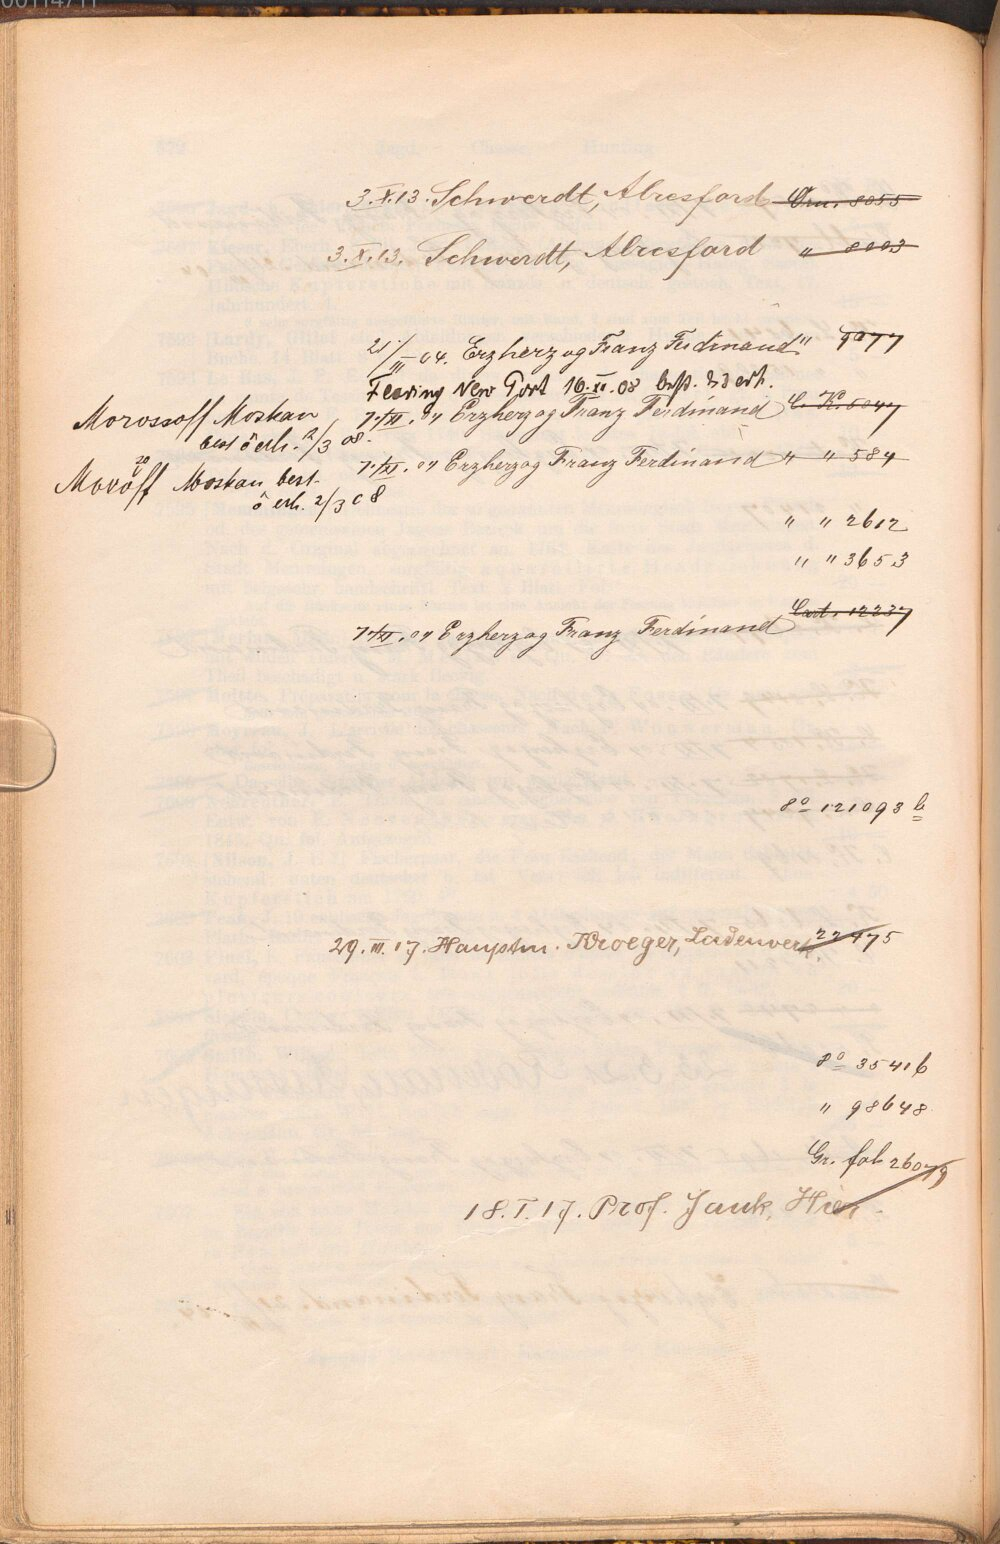 3.X.13. Schwerdt, Alresford Orn. 8055
3.X.13. Schwerdt, Alresford " 8003
21/III 04. Erzherzog Franz Ferdinand " 9077
New York 16.XI.08 best. erh.
Morossoff Moskau 7/XI.04 Erzherzog Franz Ferdinand C. K. 5047
best ö erh. 2/3 08.
Moroff Moskau best. 7/XI.04 Erzherzog Franz Ferdinand " " 584
ö erh. 2/3 08
" " 2612
" " 3653
Cart. 12237
7/XI.04 Erzherzog Franz Ferdinand
8o 121093 b
29.III.17. Hauptm. Kroeger, Ladenverk. 22475
8o 35416
" 98648
Gr. fol. 26079
18.I.17. Prof. Jauk, Wien.